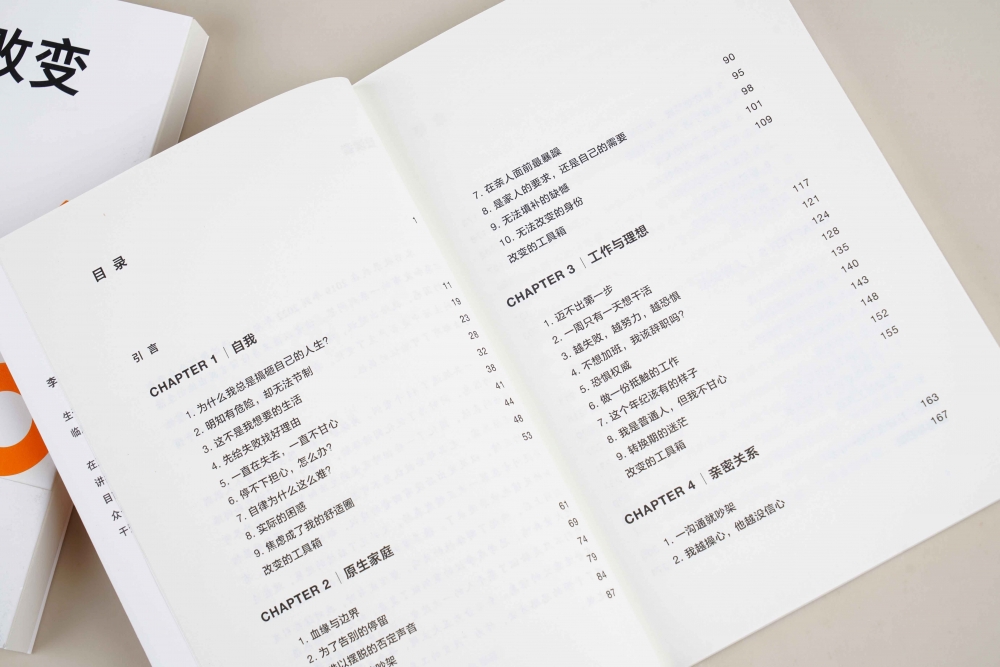 改变
李
生
临
在
讲
目
众
干
目录
引言 1
CHAPTER 1 | 自我
1. 为什么我总是搞砸自己的人生? 11
2. 明知有危险，却无法节制 19
3. 这不是我想要的生活 23
4. 先给失败找好理由 28
5. 一直在失去，一直不甘心 32
6. 停不下担心，怎么办? 38
7. 自律为什么这么难? 41
8. 实际的困惑 44
9. 焦虑成了我的舒适圈 48
改变的工具箱 53
CHAPTER 2 | 原生家庭
1. 血缘与边界 61
2. 为了告别的停留 69
以摆脱的否定声音 74
吵架 79
84
87
7. 在亲人面前最暴躁 90
8. 是家人的要求，还是自己的需要 95
9. 无法填补的缺憾 98
10. 无法改变的身份 101
改变的工具箱 109
CHAPTER 3 | 工作与理想
1. 迈不出第一步 117
2. 一周只有一天想干活 121
3. 越失败，越努力，越恐惧 124
4. 不想加班，我该辞职吗? 128
5. 恐惧权威 135
6. 做一份抵触的工作 140
7. 这个年纪该有的样子 143
8. 我是普通人，但我不甘心 148
9. 转换期的迷茫 152
改变的工具箱 155
CHAPTER 4 | 亲密关系
1. 一沟通就吵架 163
2. 我越操心，他越没信心 167